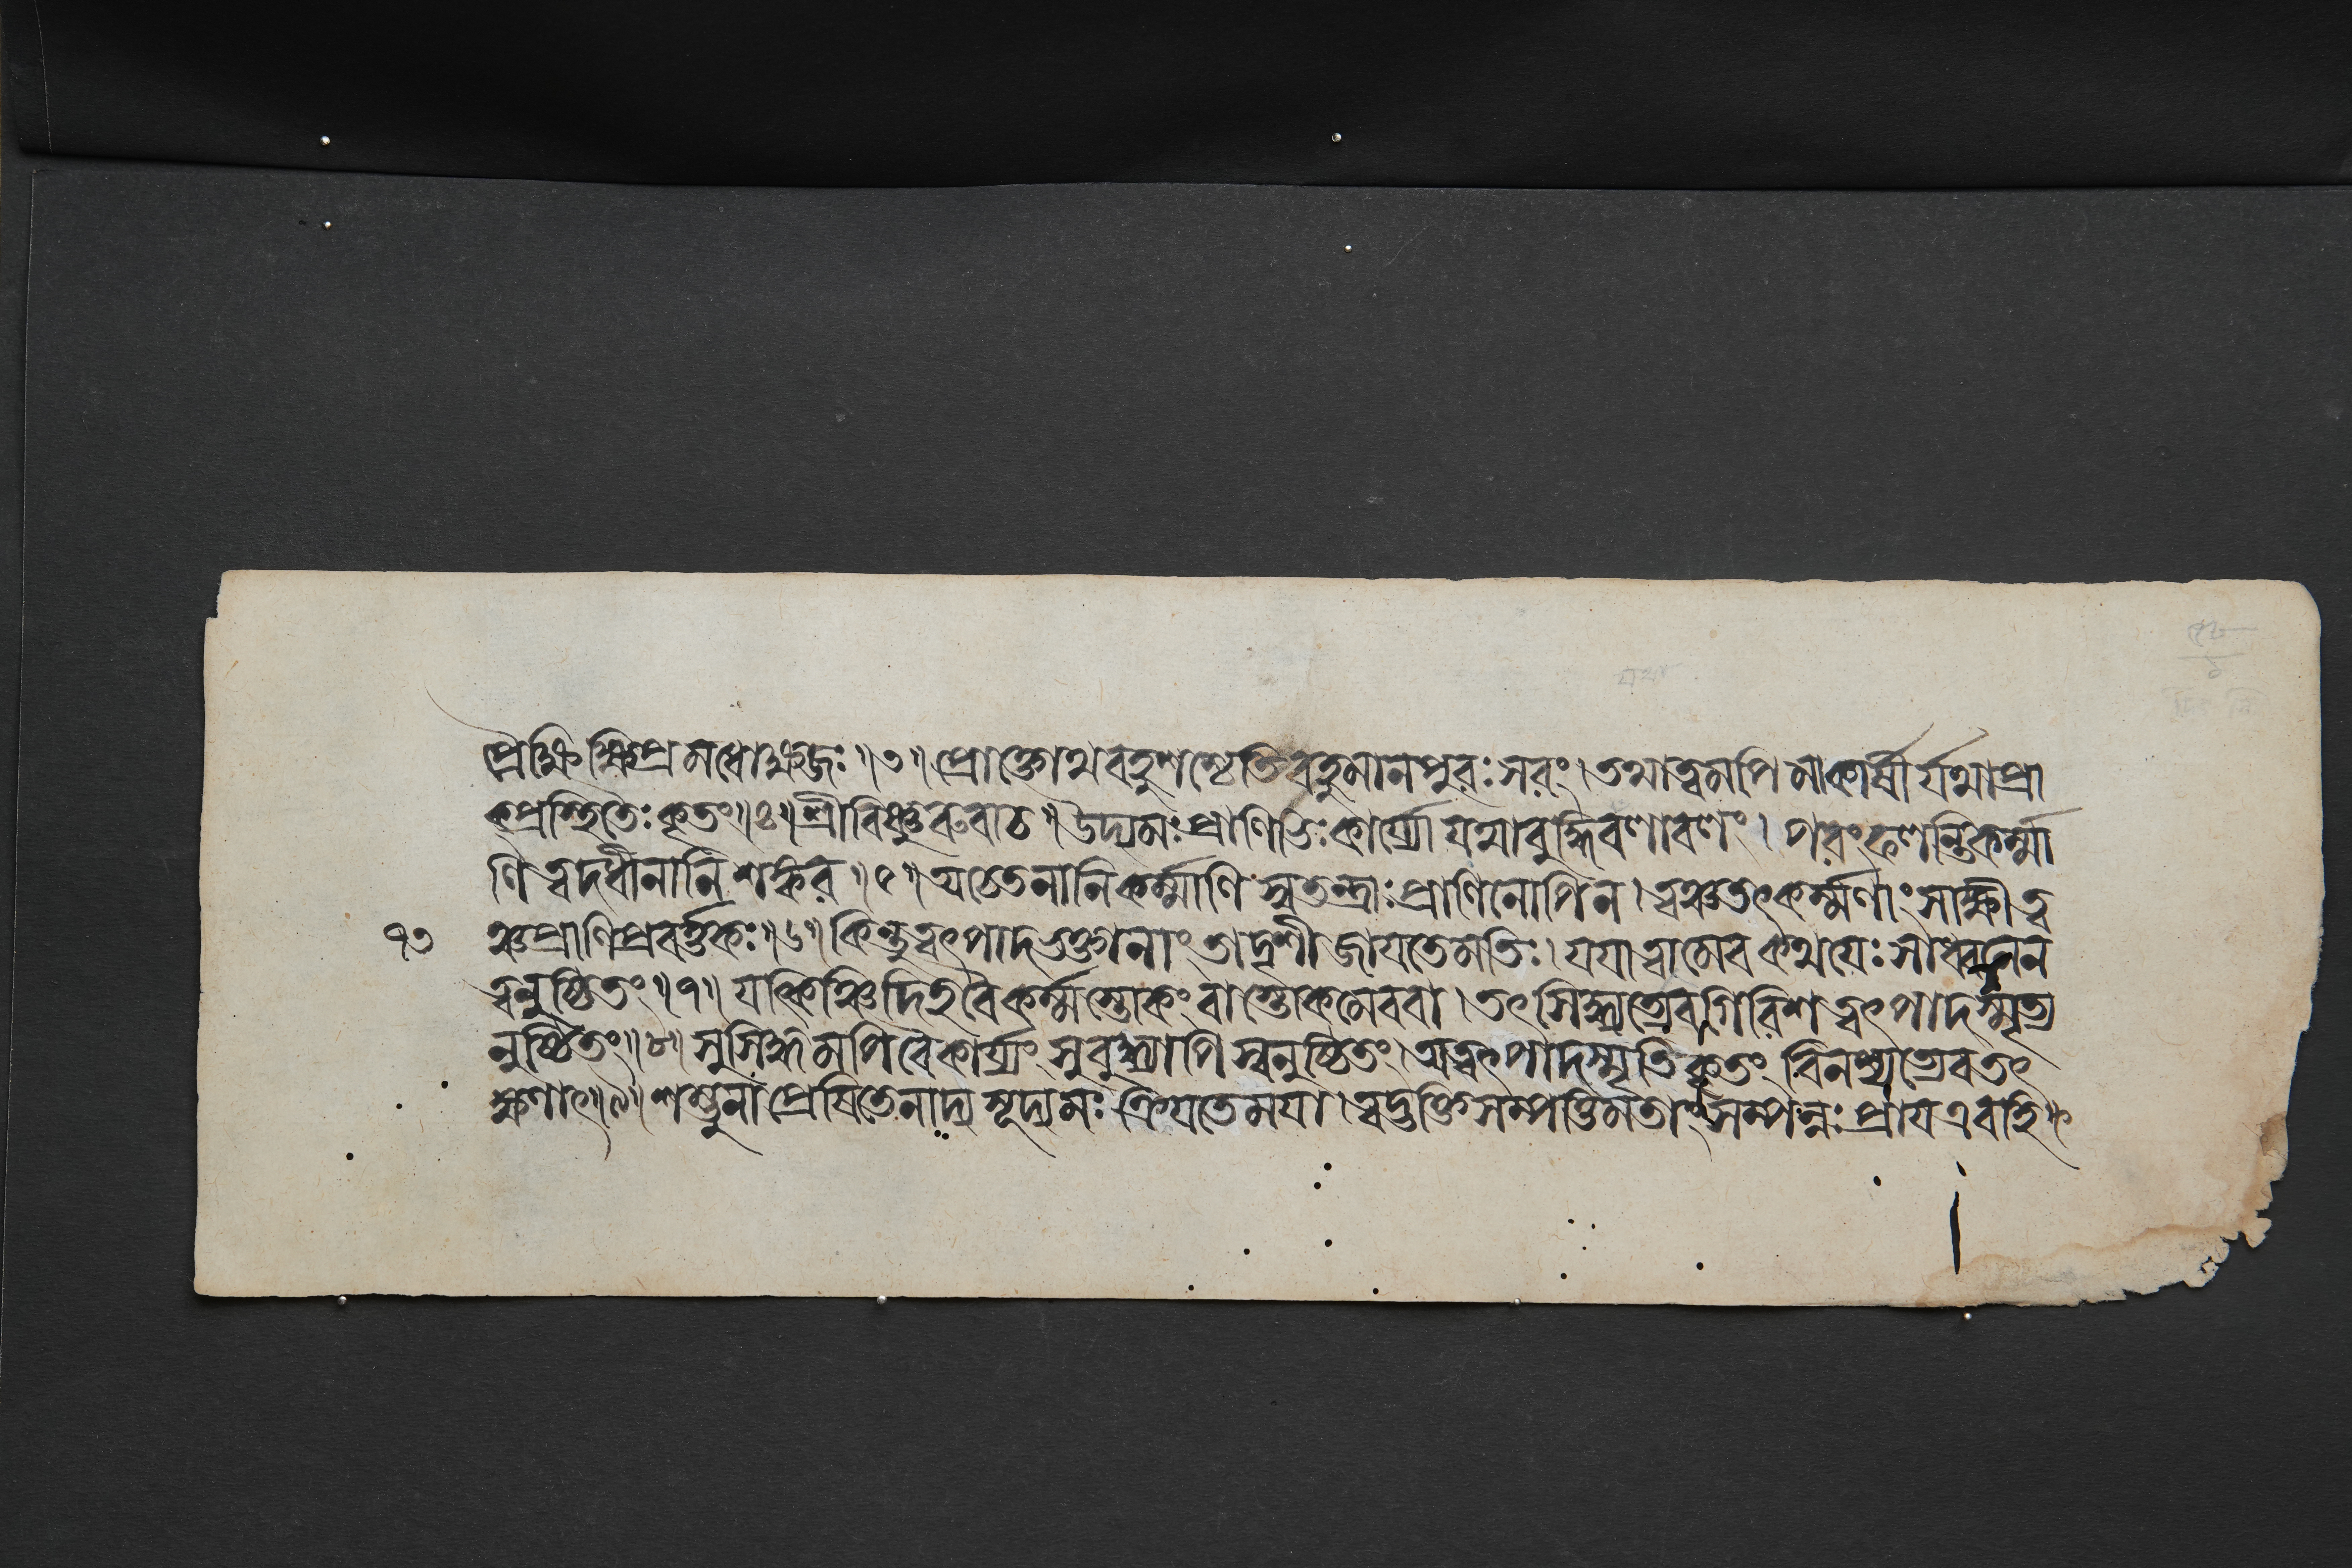 প্রৈক্ষি ক্ষিপ্রমধোক্ষজঃ ॥৩॥ প্রোক্তোথ বহুশশ্চেতি বহুমানপুরঃসরং । তথা ত্বমপি মাকার্ষী র্যথা প্রা
ক্প্রস্থিতৈঃ কৃতং ॥৪॥ শ্রীবিষ্ণুরুবাচ ॥ উদ্যমঃ প্রাণিভিঃ কার্য্যো যথাবুদ্ধিবলাবলং । পরং ফলন্তি কর্ম্মা
ণি ত্বদধীনানি শঙ্কর ॥৫॥ অচেতনানি কর্ম্মাণি স্বতন্ত্রাঃ প্রাণিনোপি ন । ত্বঞ্চ তৎকর্ম্মণাং সাক্ষী ত্ব
৭৩ ঞ্চ প্রাণিপ্রবর্ত্তকঃ ॥৬॥ কিন্তু ত্বৎপাদভক্তানাং তাদৃশী জায়তে মতিঃ । যয়া ত্বামেব কথয়েঃ সাধ্বনেন
ত্বনুষ্ঠিতং ॥৭॥ যৎকিঞ্চিদিহ বৈ কর্ম্ম স্তোকং বাস্তোকমেব বা । তৎসিদ্ধ্যত্যেব গিরিশ ত্বৎপাদস্মৃত্য
নুষ্ঠিতং ॥৮॥ সুসিদ্ধমপি বৈ কার্য্যং সুবুদ্ধ্যাপি স্বনুষ্ঠিতং । অত্বৎপাদস্মৃতিকৃতং বিনশ্যত্যেব তৎ
ক্ষণাৎ ॥৯॥ শম্ভুনা প্রেষিতেনাদ্য সূদ্যমঃ ক্রিয়তে ময়া । ত্বদ্ভক্তিসম্পত্তিমতাং সম্পন্নঃ প্রায় এব হি ॥